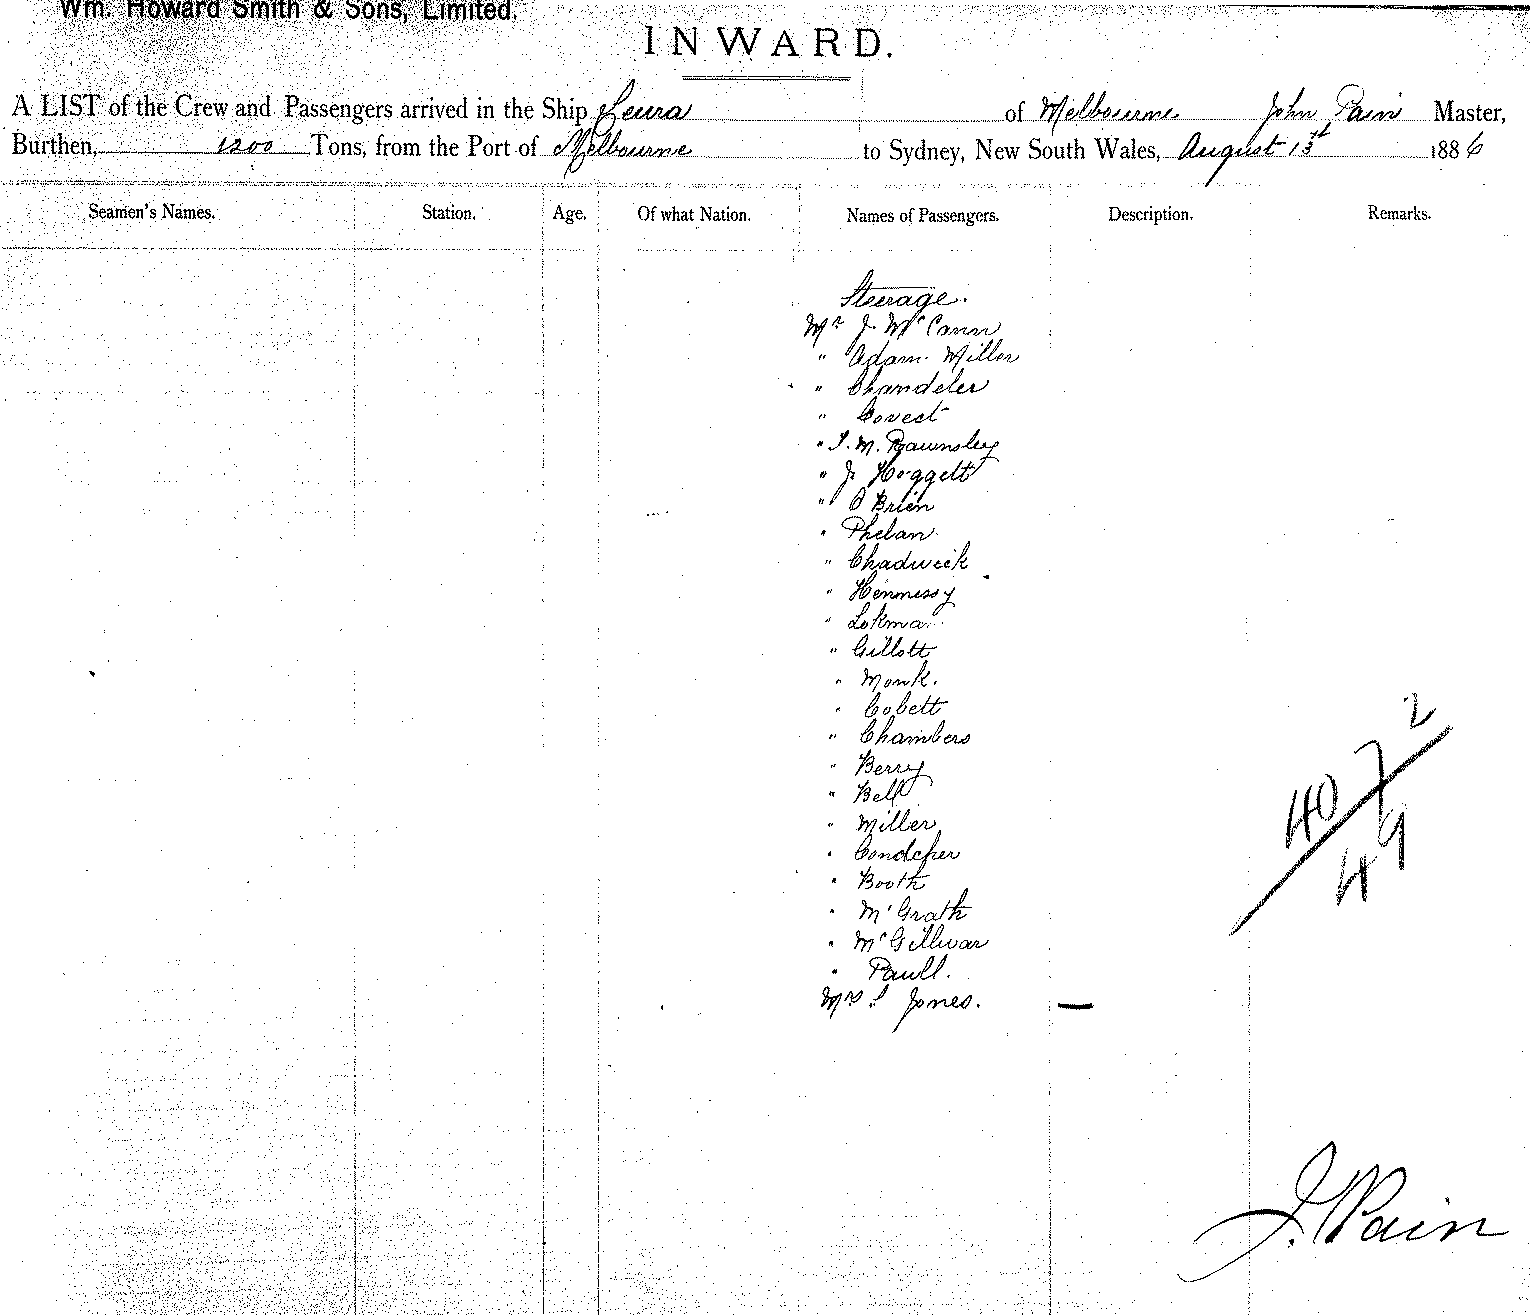 Wm. Howard Smith & Sons, Limited.
INWARD.
A LIST of the Crew and Passengers arrived in the Ship Leura of Melbourne John Pain Master,
Burthen, 1200 Tons, from the Port of Melbourne to Sydney, New South Wales, August 13 1886
Seamen's Names. Station. Age. Of what Nation. Names of Passengers. Description. Remarks.
Steerage.
Mr J. McCann
" Adam Miller
" Chandeler
" Covect
" I. M. Rawnsley
" J Hoggett
" O Brien
" Phelan
" Chadwick
" Hennessy
" Lokma
" Gillott
" Monk.
" Cobett
" Chambers
" Berry
" Bell
" Miller
"
" Booth
" McGrath
" McGillwar
" Paull.
Mrs Jones. —
2
40 7
49
J. Pain